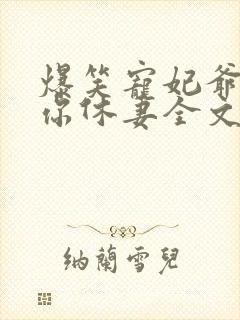 爆笑寵妃爺
你休妻全文
納蘭雪兒